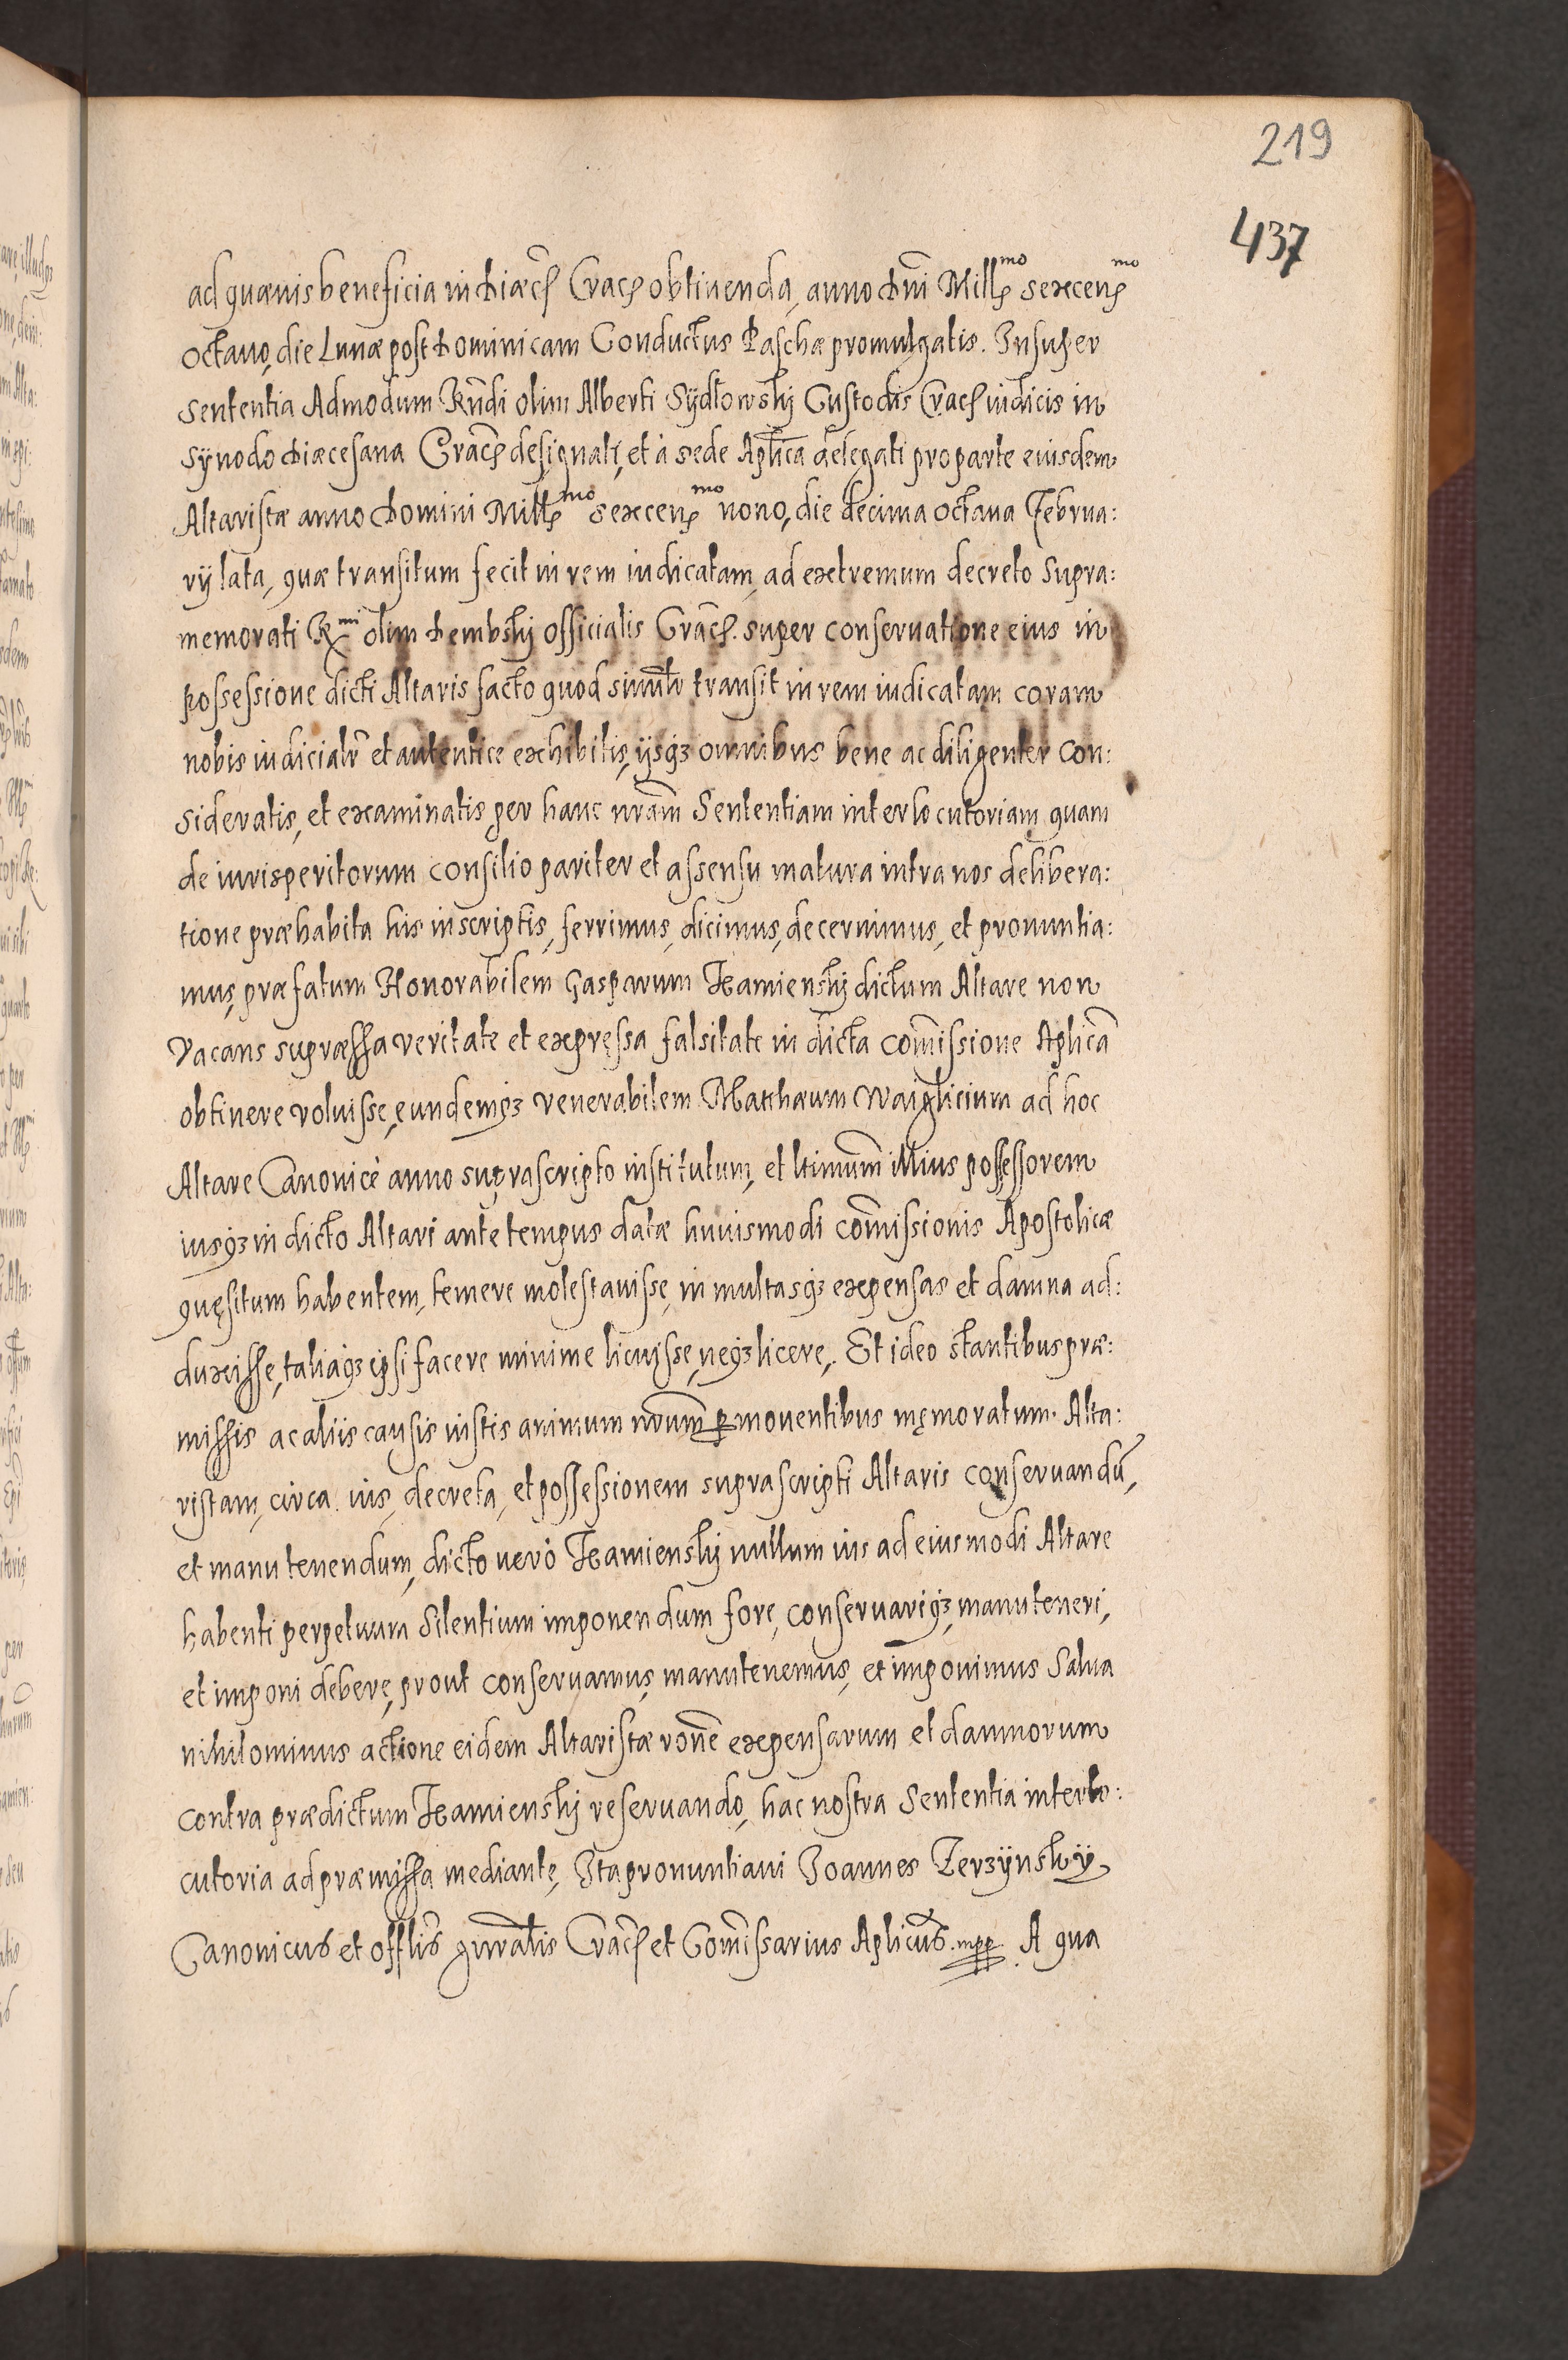 219
437
ad quævis beneficia in Diæcẽ Cracẽ obtinenda, anno Dn̄i Mill͠mo sexcen͠mo
octavo, die Lunæ post Dominicam Conductus Paschæ promulgatis. Insuper
sententia Admodum Rn̄di olim Alberti Sÿdłowskj Custodis Cracẽ iudicis in
Sÿnodo Diæcesana Cracẽ designati, et à sede Aplica delegati pro parte eiusdem
Altaristæ anno Domini Mill͠mo sexcen͠mo nono, die decima octava Februa:
rij lata, quæ transitum fecit in rem iudicatam, ad extremum decreto supra:
memorati Rmi olim Dembskj officialis Cracẽ. super conservatione eius in
possessione dicti Altaris facto quod simil̃r transit in rem iudicatam coram
nobis iudicial̃r et autentice exhibitis, ijsq3 omnibus bene ac diligenter con:
sideratis, et examinatis, per hanc nr̄am Sententiam interlocutoriam, quam
de iurisperitorum consilio pariter et assensu matura intra nos delibera:
tione præhabita his in scriptis, ferrimus, dicimus, decernimus, et pronuntia:
mus, præfatum Honorabilem Gasparum Kamienskj dictum Altare non
vacans supræssa veritate et expressa falsitate in dicta com̄issione Aplicã
obtinere voluisse, eundemq3 venerabilem Matthæum Waiglicium ad hoc
Altare Canonicè anno suprascripto institutum, et ltimum̃ illius possessorem
iusq3 in dicto Altari ante tempus datæ huiusmodi com̄issionis Apostolicæ
quęsitum habentem, temere molestavisse, in multasq3 expensas et damna ad:
duxisse, taliaq3 ipsi facere minime licuisse, neq3 licere,. Et ideo stantibus præ:
missis ac aliis causis iustis animum nr̄um p̱moventibus męmoratum. Alta:
ristam, circa ius, decreta, et possessionem suprascripti Altaris conservandũ,
et manu tenendum, dicto verò Kamienskj nullum ius ad eiusmodi Altare
habenti perpetuum Silentium imponendum fore, conservariq3, manuteneri,
et imponi debere, prout conservamus, manutenemus, et imponimus Salva
nihilominus actione eidem Altaristæ ron̄e expensarum et damnorum
contra prædictum Kamienskj reservando, hac nostra Sententia interlo:
cutoria ad præmissa mediante, Ita pronuntiavi Joannes Zerzÿnskÿ
Canonicus et offlis gn̄ralis Cracẽ et Com̄issarius Aplicus. mpp. A qua